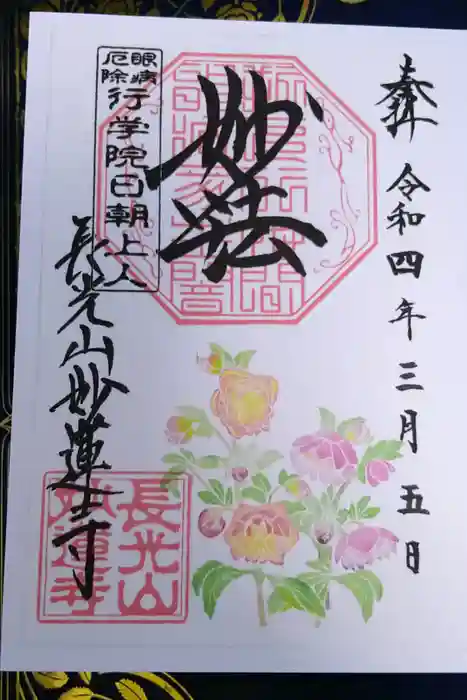 奉拝 令和四年三月五日
妙法
眼病
厄除
行学院日朝上人
長光山妙蓮寺
長光山
妙蓮寺